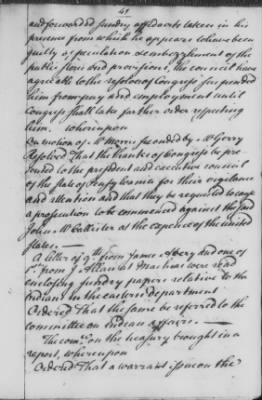 41
and forwarded sundry affidavits taken in his
presence from which he appears to have been
guilty of peculation & embezzlement of the
public stores and provisions, the council have
agreeable to the resolves of Congress suspended
him from pay and employment until
Congress shall take farther order respecting
him. whereupon
On motion of Mr Morris seconded by Mr Gerry
Resolved That the thanks of Congress be pre-
sented to the president and executive council
of the state of Pensylvania for their vigilance
and attention and that they be requested to cause
a prosecution to be commenced against the said
John at the expence of the united
states.
A letter of 9th from James and one of
from J. were read
enclosing sundry papers relative to the
Indians in the eastern department
Ordered That the same be referred to the
committee on Indian affairs.
The comee on the treasury brought in a
report, whereupon
Ordered That a warrant issue on the